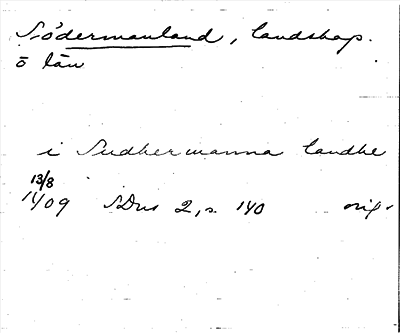 Södermanland, landskap.
o län
i Sudhermanna landhe
13/8
1409 SDns 2, s. 140 orig.